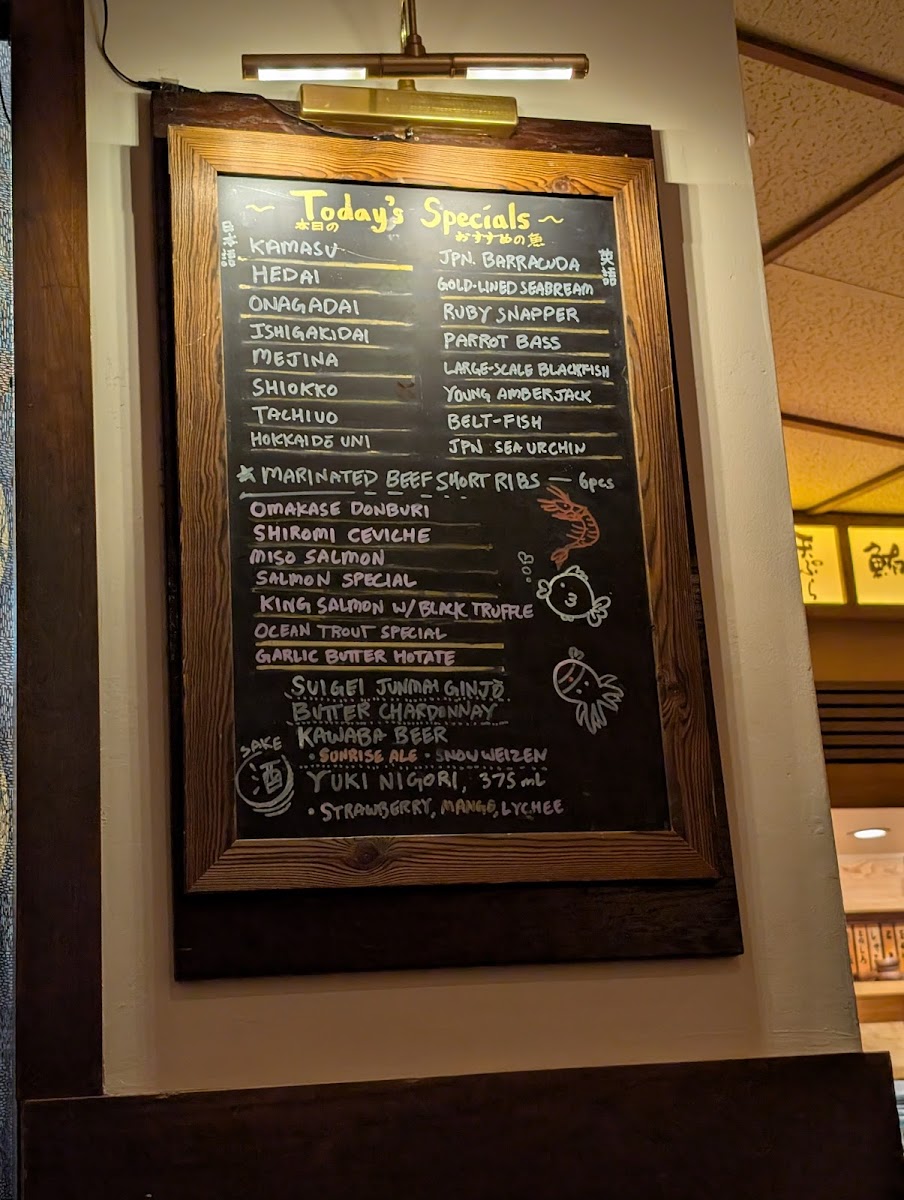 ~ Today's Specials ~
本日の おすすめの魚
日本語 英語
KAMASU JPN. BARRACUDA
HEDAI GOLD-LINED SEABREAM
ONAGADAI RUBY SNAPPER
ISHIGAKIDAI PARROT BASS
MEJINA LARGE-SCALE BLACKFISH
SHIOKKO YOUNG AMBERJACK
TACHIUO BELT-FISH
HOKKAIDŌ UNI JPN SEA URCHIN
★ MARINATED BEEF SHORT RIBS — 6pcs
OMAKASE DONBURI
SHIROMI CEVICHE
MISO SALMON
SALMON SPECIAL
KING SALMON W/ BLACK TRUFFLE
OCEAN TROUT SPECIAL
GARLIC BUTTER HOTATE
SUIGEI JUNMAI GINJŌ
BUTTER CHARDONNAY
KAWABA BEER
• SUNRISE ALE • SNOW WEIZEN
SAKE
酒
YUKI NIGORI, 375 mL
• STRAWBERRY, MANGO, LYCHEE